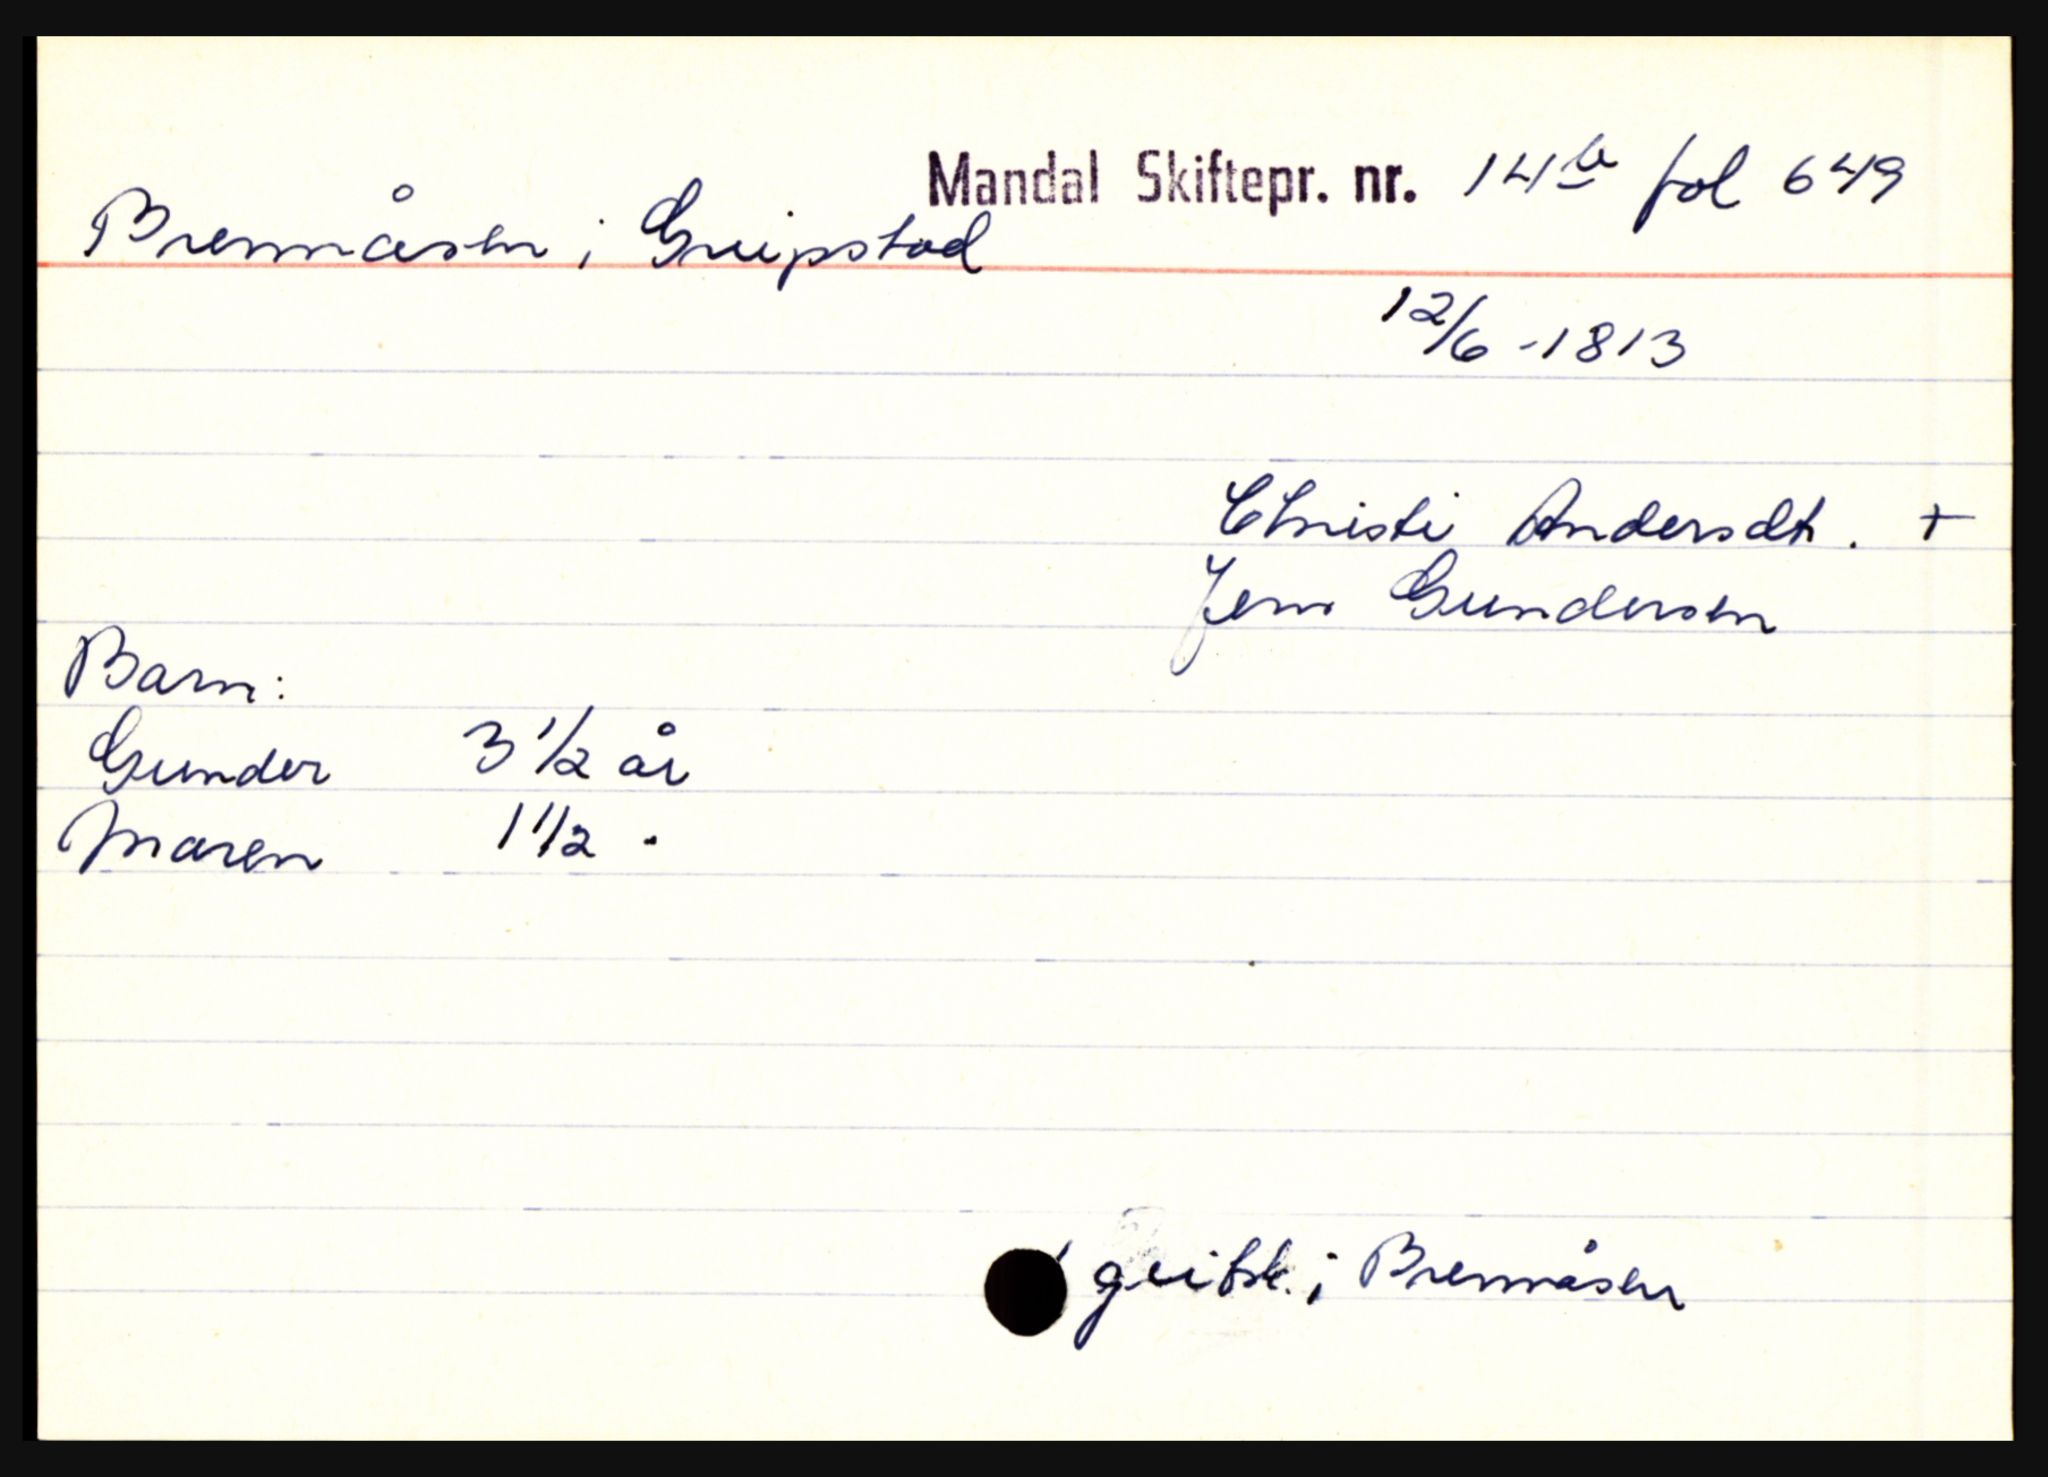 Mandal Skiftepr. nr. 14b fol 649
Brennåsen i Greipstad
12/6 - 1813
Christi Andersdt. +
Jens Gundersen
Barn:
Gunder 3 1/2 år
Maren 1 1/2 "
i Brennåsen